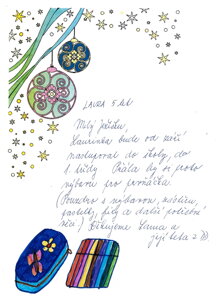 LAURA 5 let
Milý Ježíšku,
Laurinka bude od září
nastupovat do školy, do
1. třídy. Přála by si proto
výbavu pro prvňáčka.
(Pouzdro s výbavou, nůžkami,
pastelky, fixy a další potřebné
věci.) Děkujeme Laura a
její teta z